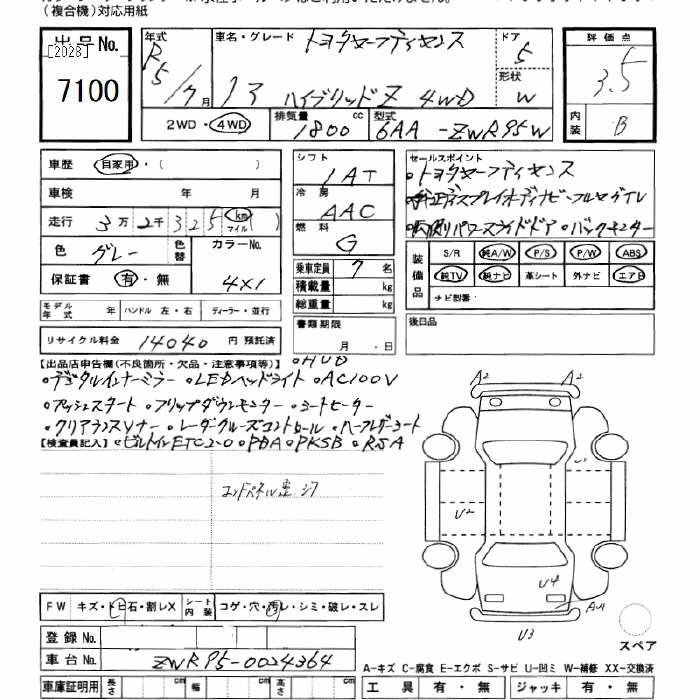 (複合機)対応用紙
出品No. 年式 車名・グレード トヨタセーフティセンス ドア 評価点
[2028] R 5 3.5
7100 5/7月 ハイブリッドZ 4WD 形状 W
2WD・4WD 排気量 1800 cc 型式 6AA-ZWR95W 内装 B
車歴 自家用・( ) シフト 1AT セールスポイント
・トヨタセーフティセンス
車検 年 月 冷房 AAC
走行 3万 2千 325 km マイル ( ) 燃料 G ・両側パワースライドドア ・バックモニター
色 グレー 色替 カラーNo. 4X1 装備品 S/R 純A/W P/S P/W ABS
保証書 有・無 乗車定員 7名 純TV 純ナビ 革シート 外ナビ エアB
積載量 kg ナビ型番:
モデル年式 年 ハンドル 左・右 ディーラー・並行 総重量 kg
リサイクル料金 14040 円 預託済 書類期限 月・日 後日品
【出品店申告欄(不良箇所・欠品・注意事項等)】 ・HUD
・デジタルインナーミラー ・LEDヘッドライト ・AC100V
・プッシュスタート ・フリップダウンモニター ・シートヒーター
・クリアランスソナー ・レーダークルーズコントロール ・ハーフレザーシート
【検査員記入】 ・ビルトインETC2.0 ・PDA ・PKSB ・RSA
A2 A2
U2
U4
U3
FW キズ・トビ石・割レX シート内装 コゲ・穴・汚レ・シミ・破レ・スレ
登録No. スペア
車台No. ZWR95-0024364 A-キズ C-腐食 E-エクボ S-サビ U-凹ミ W-補修 XX-交換済
車庫証明用 長さ cm 幅 cm 高さ cm 工具 有・無 ジャッキ 有・無